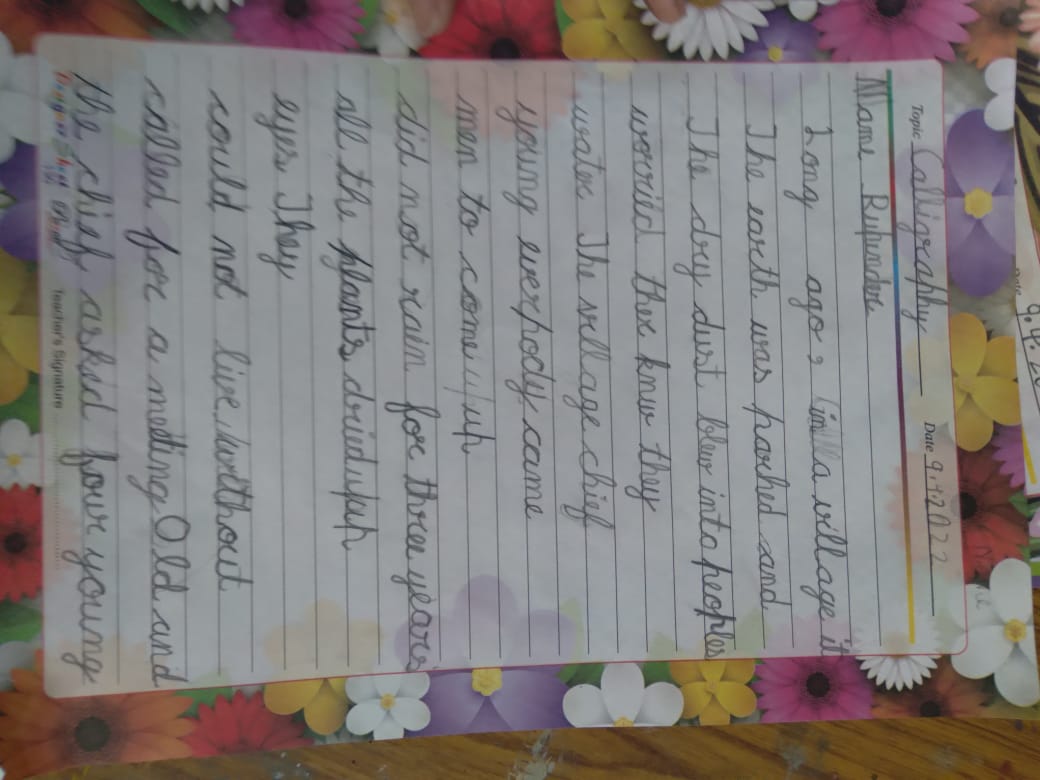 Topic Calligraphy Date 9.4.2022
Name Rupinder
Long ago, in a village it
The earth was parked and
The dry dust blew into peoples
worrild ther know they
water The village chief
young everpody came
men to come up
did not rain for three years
all the plants driedup
eyes They
could not live without
called for a metting Old and
the chief asked four young
Teacher's Signature
Date 9.4.20